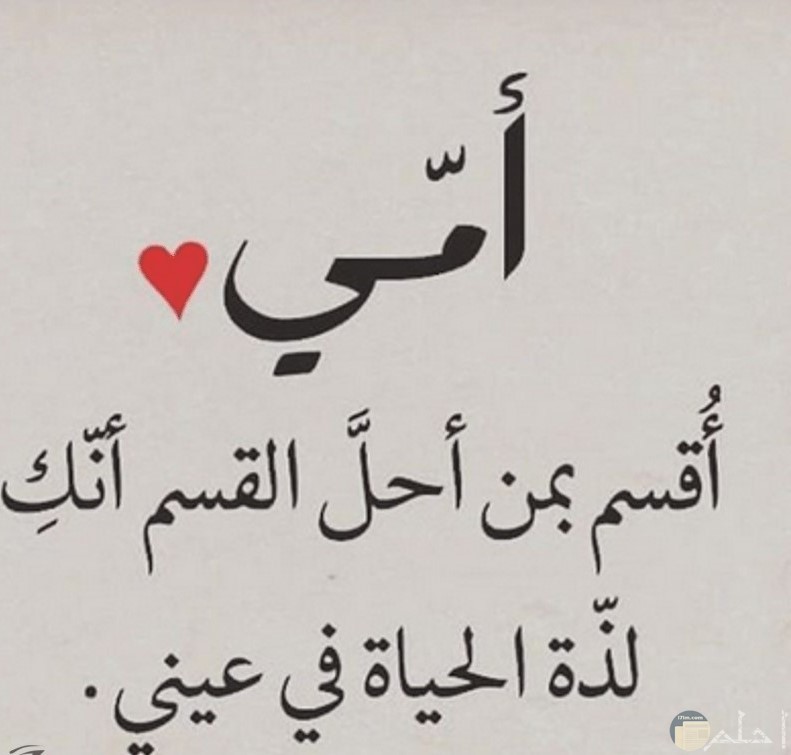 أمّي ♥
أُقسم بمن أحلَّ القسم أنّكِ
لذّة الحياة في عيني .
i7lm.com
احلم